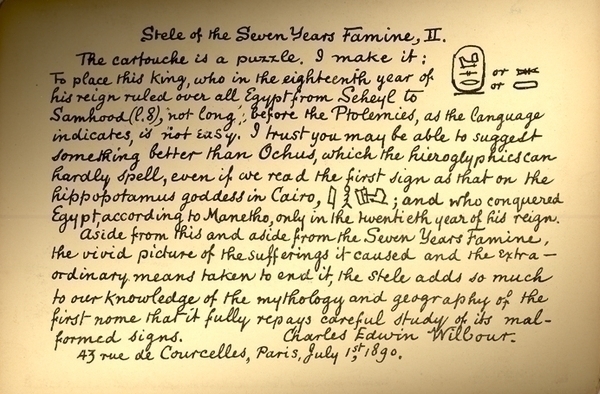 Stele of the Seven Years Famine, II.
The cartouche is a puzzle. I make it;
To place this King, who in the eighteenth year of or
his reign ruled over all Egypt from Seheyl to or
Samhood (l.8), not long, before the Ptolemies, as the language
indicates, is not easy. I trust you may be able to suggest
something better than Ochus, which the hieroglyphics can
hardly spell, even if we read the first sign as that on the
hippopotamus goddess in Cairo, ; and who conquered
Egypt, according to Manetho, only in the twentieth year of his reign.
Aside from this and aside from the Seven Years Famine,
the vivid picture of the sufferings it caused and the extra-
ordinary means taken to end it, the stele adds so much
to our knowledge of the mythology and geography of the
first nome that it fully repays careful study of its mal-
formed signs. Charles Edwin Wilbour.
43 rue de Courcelles, Paris, July 1st, 1890.